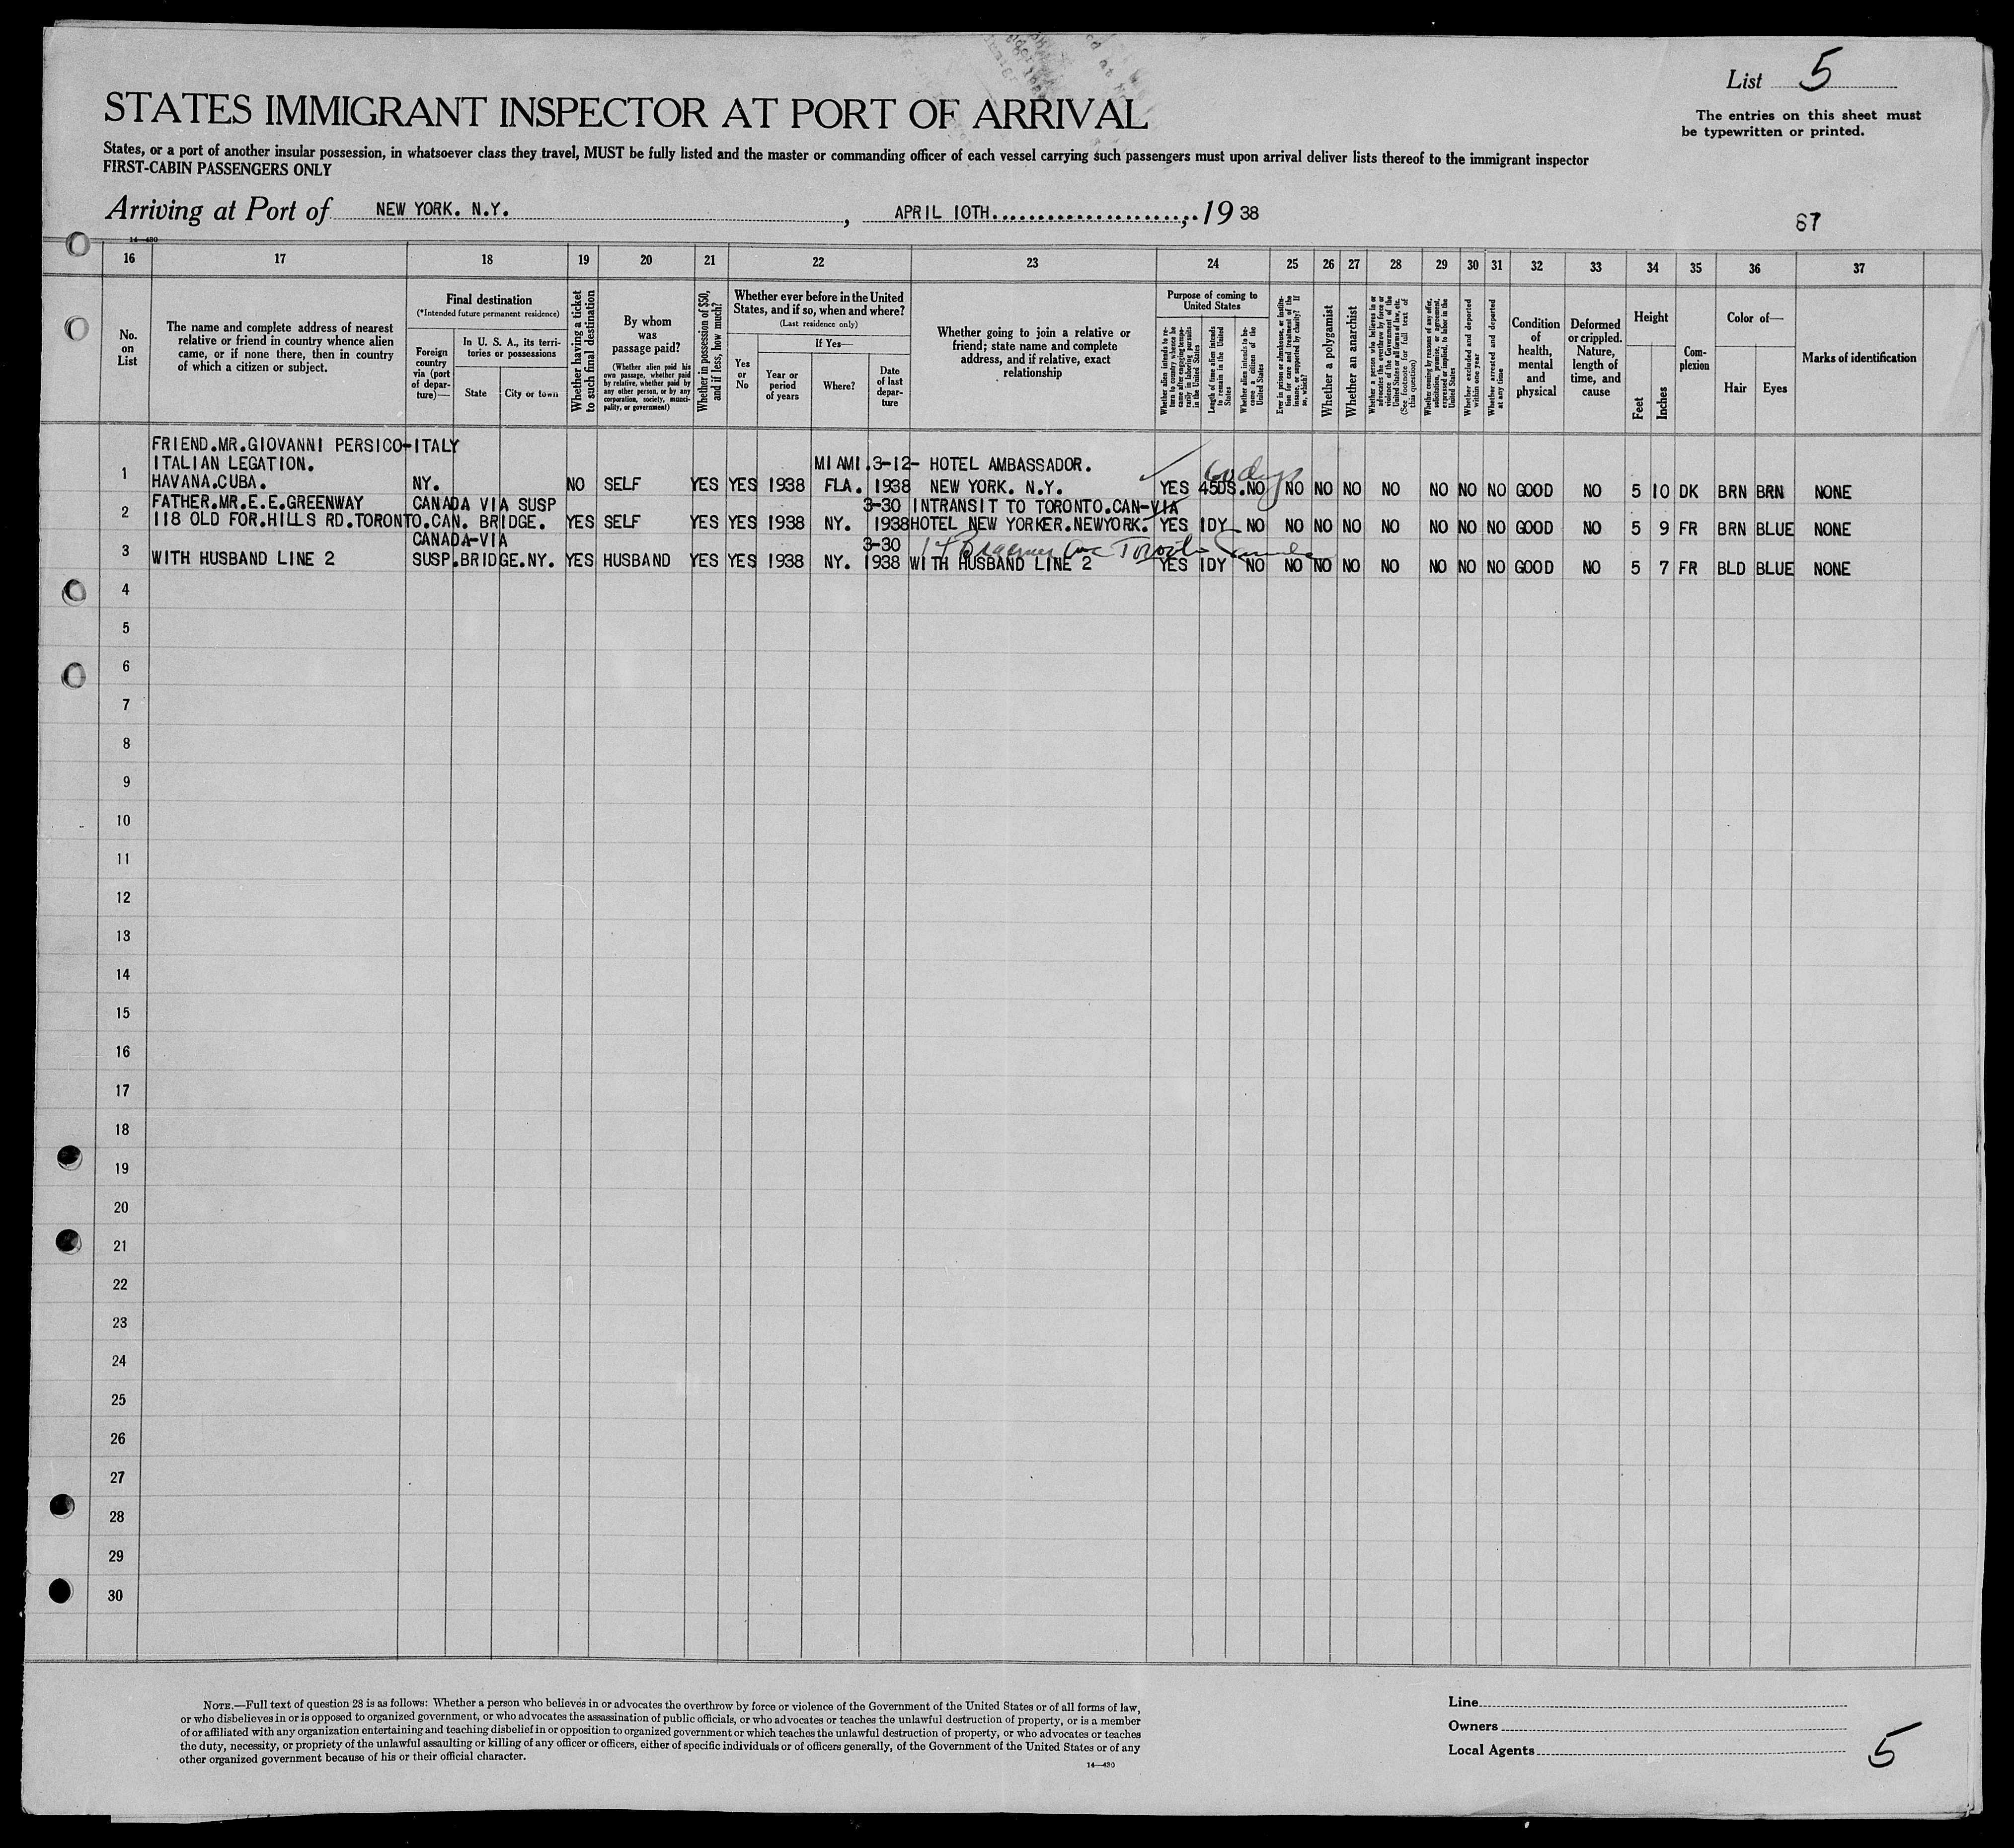 List 5
The entries on this sheet must
be typewritten or printed.
STATES IMMIGRANT INSPECTOR AT PORT OF ARRIVAL
States, or a port of another insular possession, in whatsoever class they travel, MUST be fully listed and the master or commanding officer of each vessel carrying such passengers must upon arrival deliver lists thereof to the immigrant inspector
FIRST-CABIN PASSENGERS ONLY
Arriving at Port of NEW YORK. N.Y. , APRIL 10TH. , 19 38
67
14—430
16 17 18 19 20 21 22 23 24 25 26 27 28 29 30 31 32 33 34 35 36 37
No. on List
The name and complete address of nearest
relative or friend in country whence alien
came, or if none there, then in country
of which a citizen or subject.
Final destination
(*Intended future permanent residence)
Foreign country via (port of departure)—
In U. S. A., its territories or possessions
State
City or town
Whether having a ticket to such final destination
By whom was passage paid?
(Whether alien paid his own passage, whether paid by relative, whether paid by any other person, or by any corporation, society, municipality, or government)
Whether in possession of $50, and if less, how much?
Whether ever before in the United
States, and if so, when and where?
(Last residence only)
Yes or No
If Yes—
Year or period of years
Where?
Date of last departure
Whether going to join a relative or
friend; state name and complete
address, and if relative, exact
relationship
Purpose of coming to United States
Whether alien intends to return to country whence he came after engaging temporarily in laboring pursuits in the United States
Length of time alien intends to remain in the United States
Whether alien intends to become a citizen of the United States
Ever in prison or almshouse, or institution for care and treatment of the insane, or supported by charity? If so, which?
Whether a polygamist
Whether an anarchist
Whether a person who believes in or advocates the overthrow by force or violence of the Government of the United States or all forms of law, etc. (See footnote for full text of this question)
Whether coming by reasons of any offer, solicitation, promise, or agreement, expressed or implied, to labor in the United States
Whether excluded and deported within one year
Whether arrested and deported at any time
Condition of health, mental and physical
Deformed or crippled. Nature, length of time, and cause
Height
Feet
Inches
Complexion
Color of—
Hair
Eyes
Marks of identification
FRIEND.MR.GIOVANNI PERSICO-ITALY
ITALIAN LEGATION. MIAMI.3-12- HOTEL AMBASSADOR. 60 days
1 HAVANA.CUBA. NY. NO SELF YES YES 1938 FLA. 1938 NEW YORK. N.Y. YES 45DS. NO NO NO NO NO NO NO NO GOOD NO 5 10 DK BRN BRN NONE
FATHER.MR.E.E.GREENWAY CANADA VIA SUSP 3-30 INTRANSIT TO TORONTO.CAN-VIA
2 118 OLD FOR.HILLS RD.TORONTO.CAN. BRIDGE. YES SELF YES YES 1938 NY. 1938 HOTEL NEW YORKER.NEWYORK. YES 1DY NO NO NO NO NO NO NO NO GOOD NO 5 9 FR BRN BLUE NONE
CANADA-VIA 3-30 Ave Toronto Canada
3 WITH HUSBAND LINE 2 SUSP.BRIDGE.NY. YES HUSBAND YES YES 1938 NY. 1938 WITH HUSBAND LINE 2 YES 1DY NO NO NO NO NO NO NO NO GOOD NO 5 7 FR BLD BLUE NONE
4
5
6
7
8
9
10
11
12
13
14
15
16
17
18
19
20
21
22
23
24
25
26
27
28
29
30
NOTE.—Full text of question 28 is as follows: Whether a person who believes in or advocates the overthrow by force or violence of the Government of the United States or of all forms of law,
or who disbelieves in or is opposed to organized government, or who advocates the assassination of public officials, or who advocates or teaches the unlawful destruction of property, or is a member
of or affiliated with any organization entertaining and teaching disbelief in or opposition to organized government or which teaches the unlawful destruction of property, or who advocates or teaches
the duty, necessity, or propriety of the unlawful assaulting or killing of any officer or officers, either of specific individuals or of officers generally, of the Government of the United States or of any
other organized government because of his or their official character.
14—430
Line
Owners
Local Agents
5